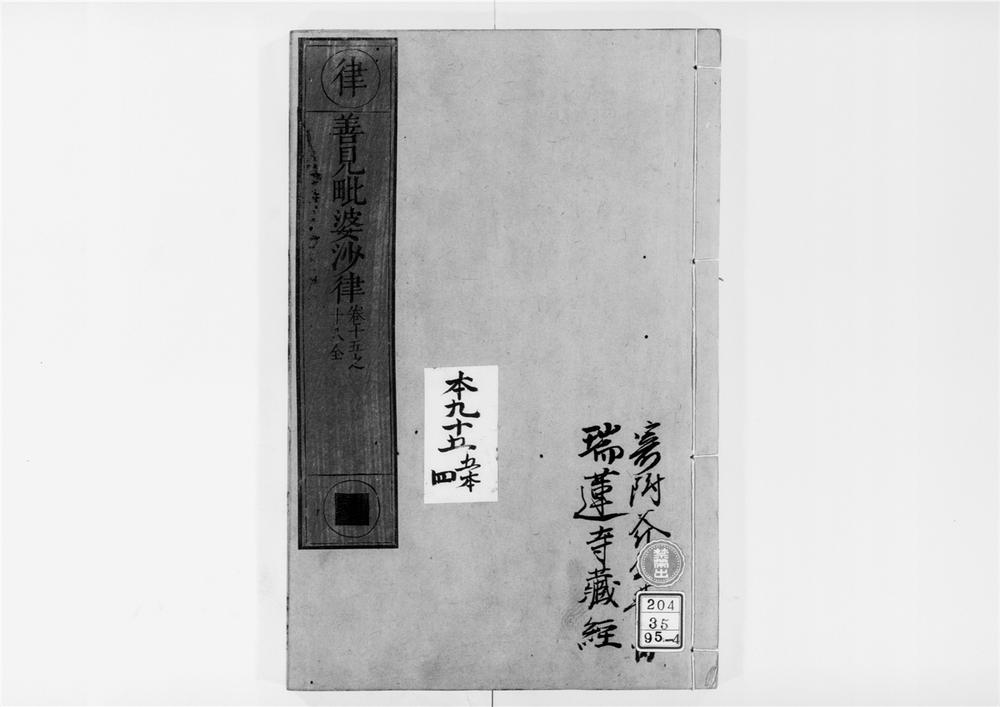 律
善見毗婆沙律
卷十五之
十八全
寄附
瑞蓮寺藏經
本九十五
五本
四
禁帶出
204
35
95-4